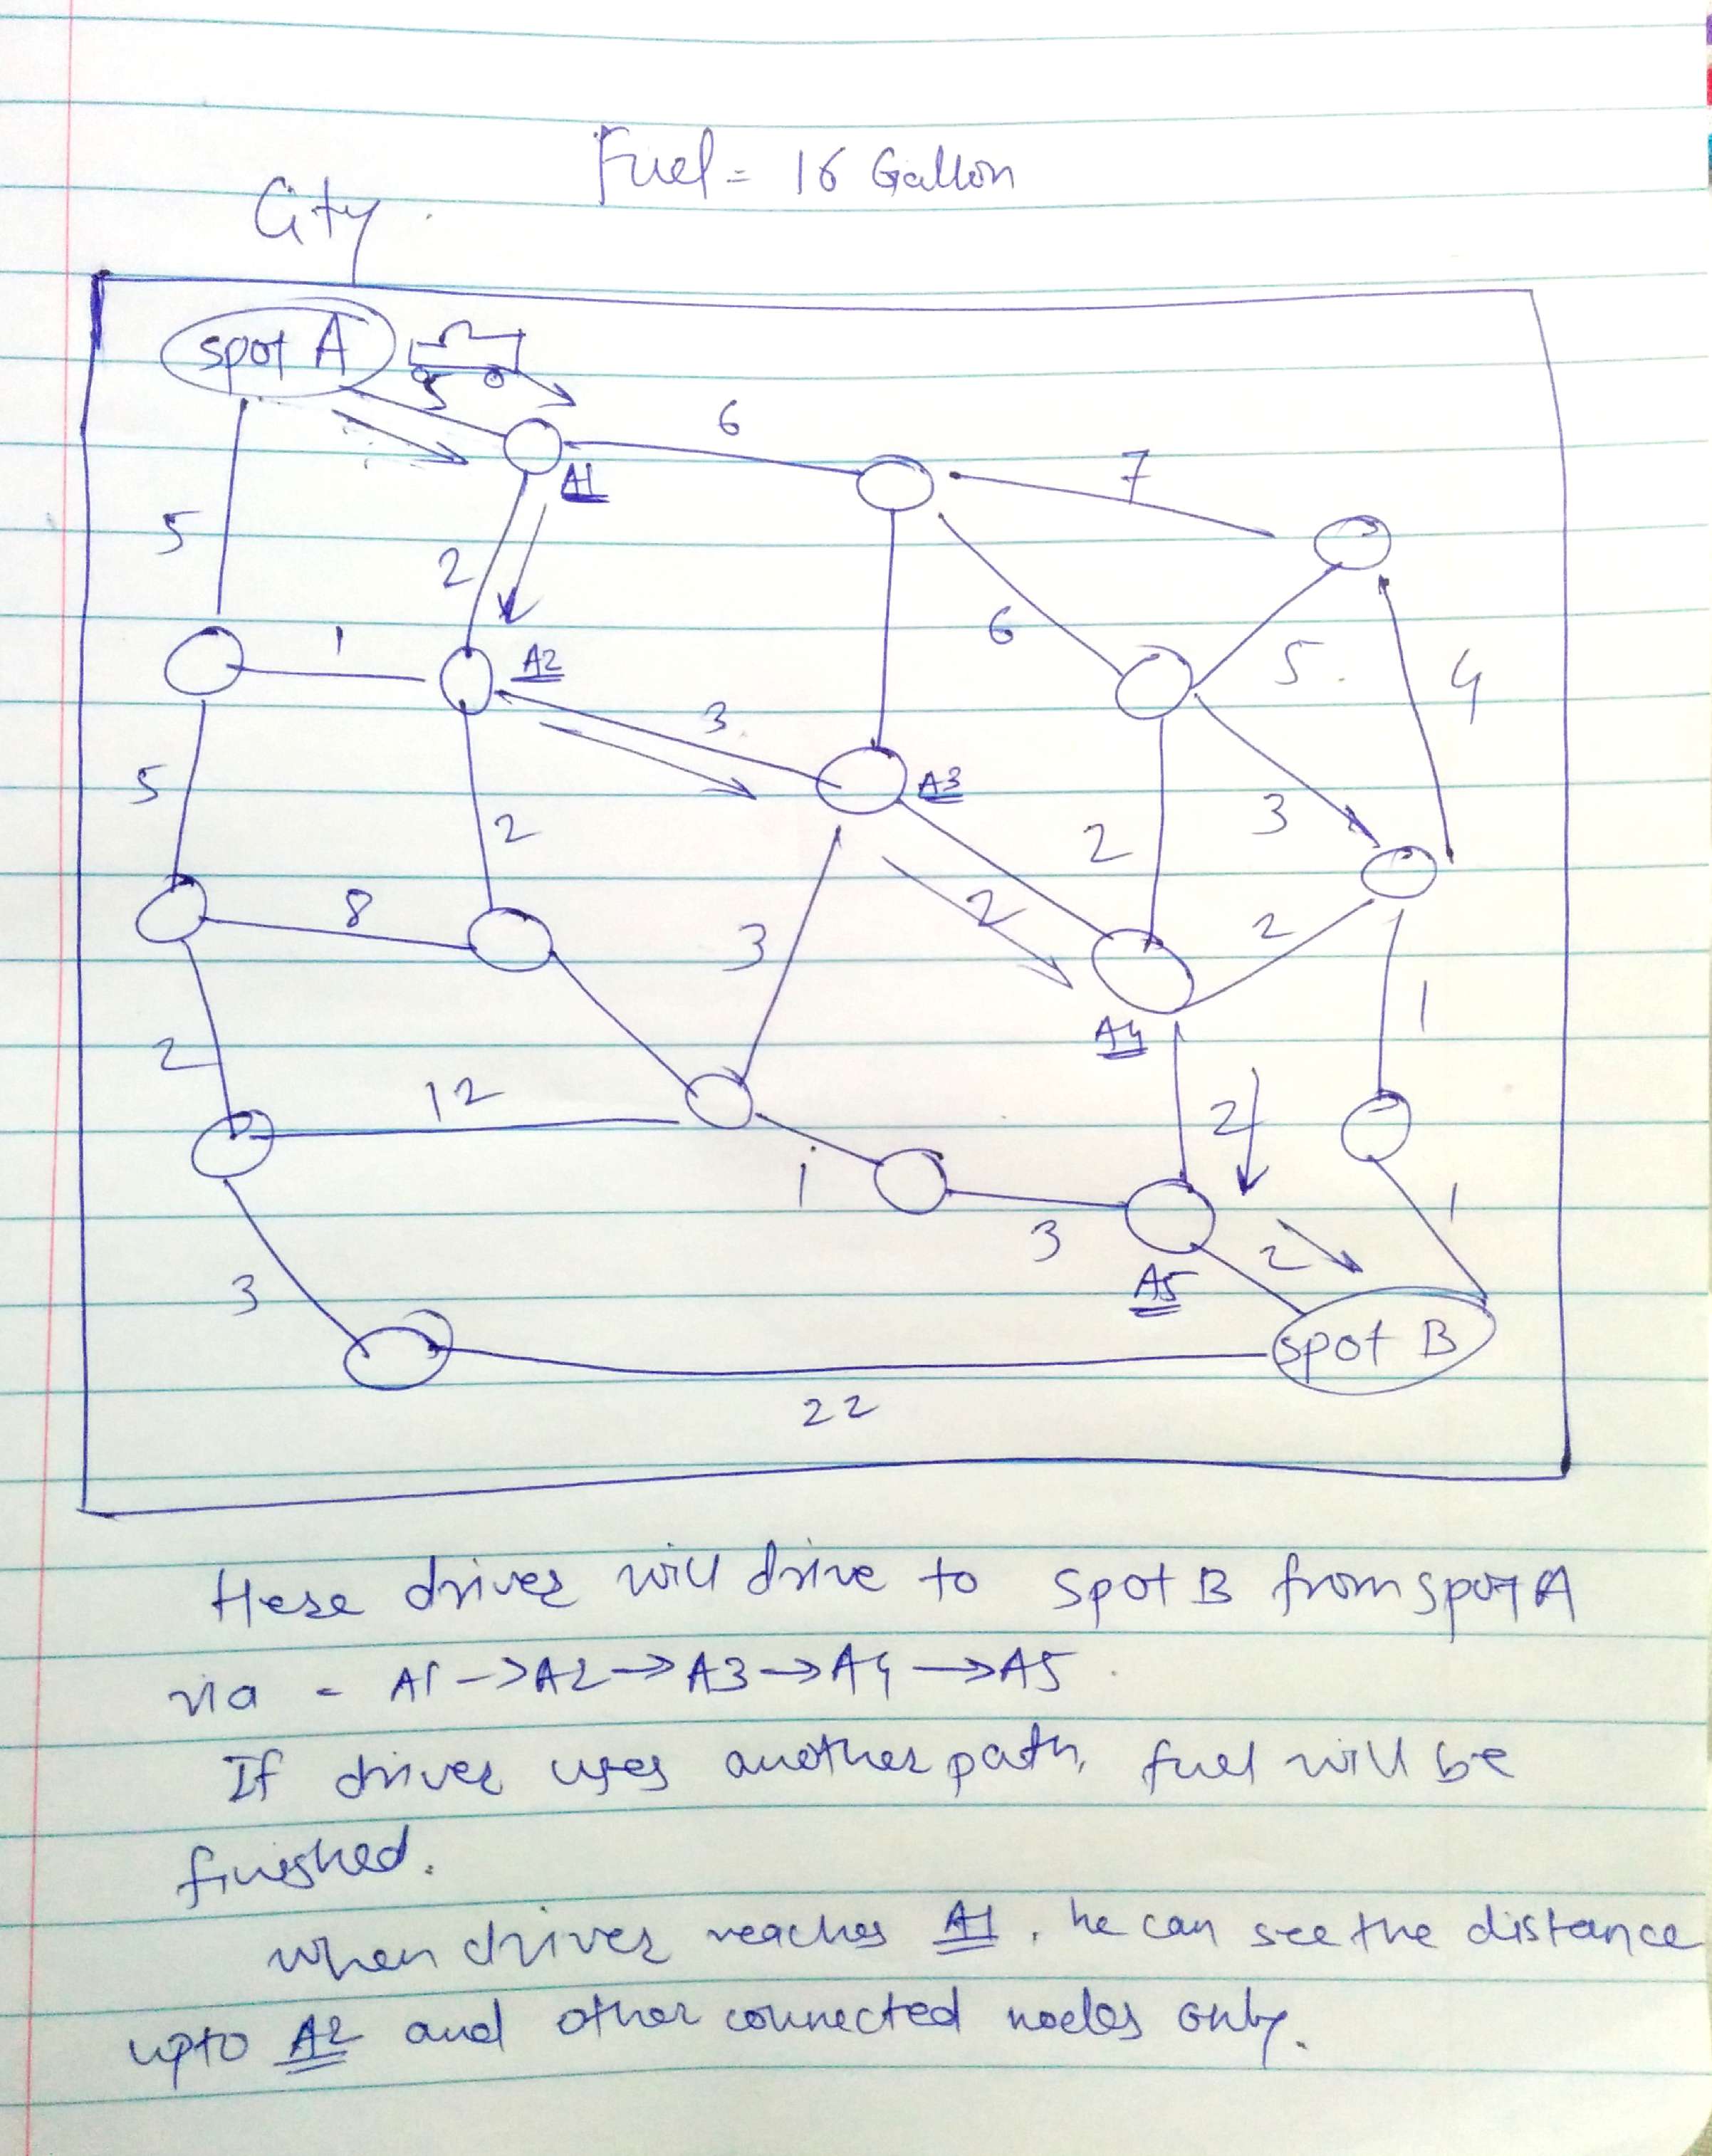 Fuel = 16 Gallon
City
spot A
5
6
A1
7
5
2
1
A2
6
5.
4
3
5
A3
2
2
3
8
3
2
2
A4
1
2
12
2
1
1
3
2
3
A5
spot B
22
Here driver will drive to spot B from spot A
via - A1 -> A2 -> A3 -> A4 -> A5
If driver uses another path, fuel will be
finished.
when driver reaches A1, he can see the distance
upto A2 and other connected nodes only.